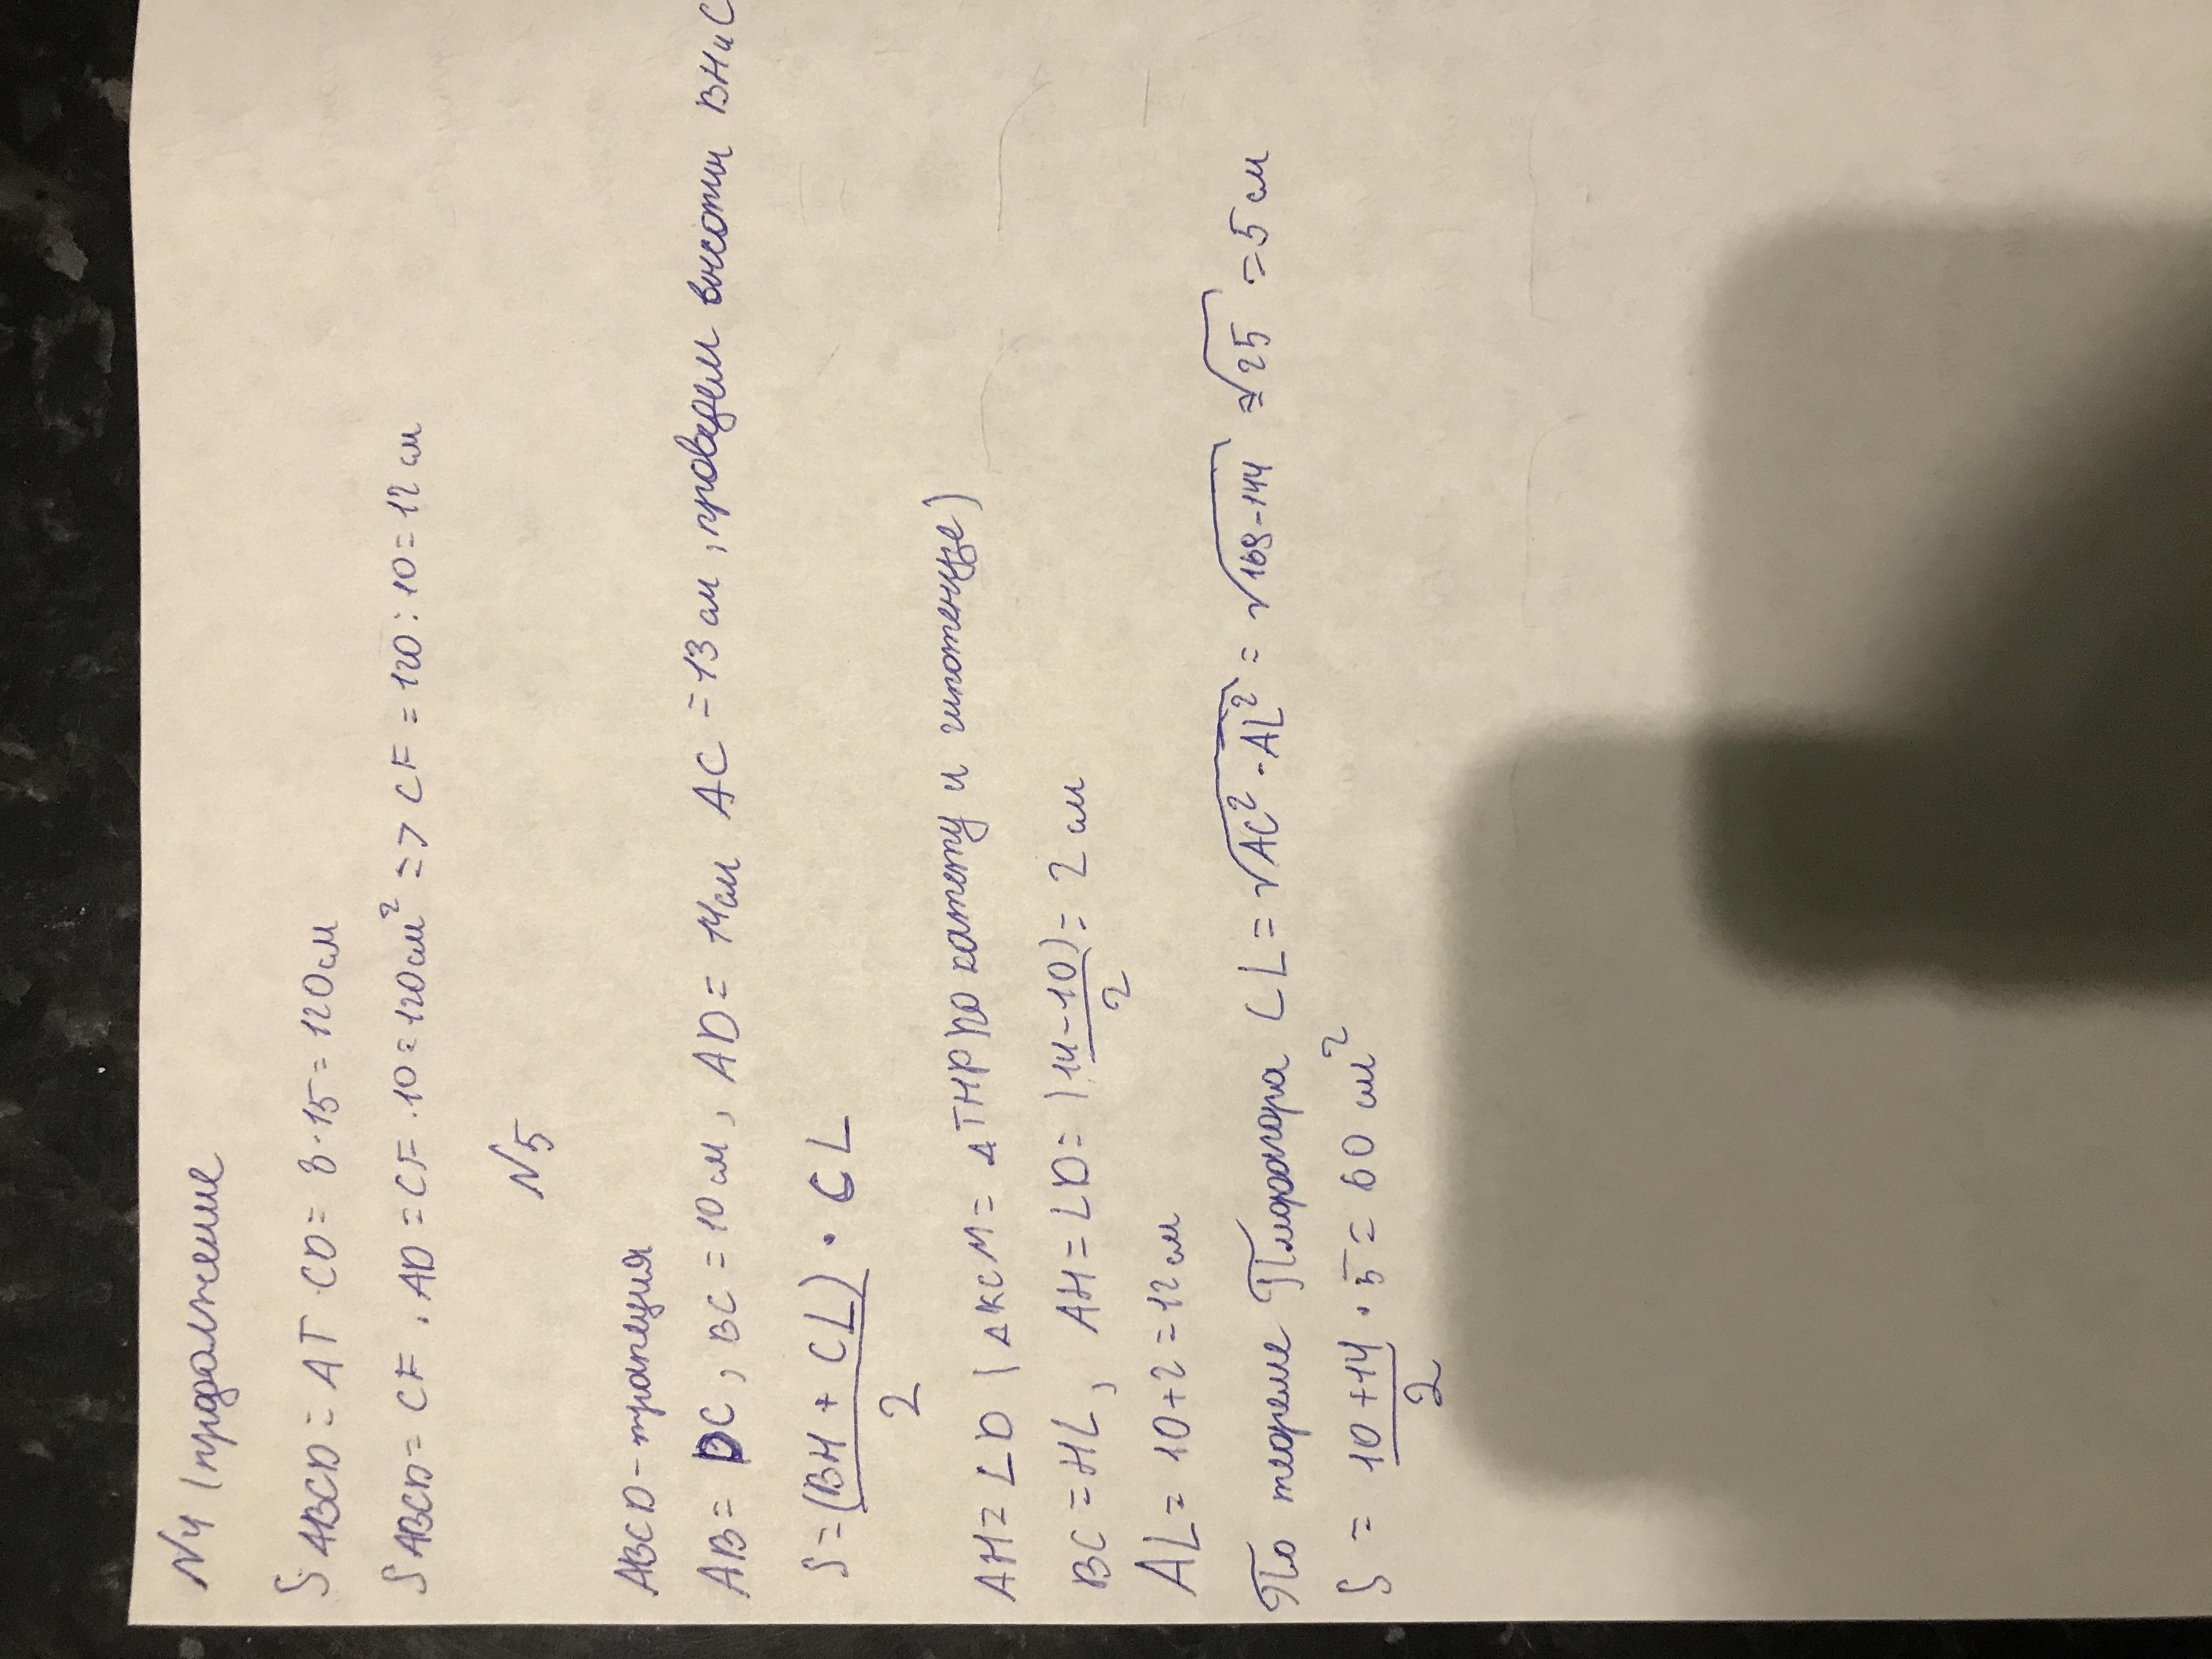 N4 (продолжение
S ABCD = AT · CD = 8 · 15 = 120 см
S ABCD = CF · AD = CF · 10 = 120 см² => CF = 120 : 10 = 12 см
N5
ABCD - трапеция
AB = DC, BC = 10 см, AD = 14 см AC = 13 см, проведем высоты BH и C
S = (BH + CL)/2 · CL
AH = LD ( ΔKCM = ΔTHP) по катету и гипотенузе)
BC = HL, AH = LD = (14-10)/2 = 2 см
AL = 10 + 2 = 12 см
По теореме Пифагора CL = √AC² - AL² = √169-144 = √25 = 5 см
S = 10 + 14/2 · 5 = 60 см²